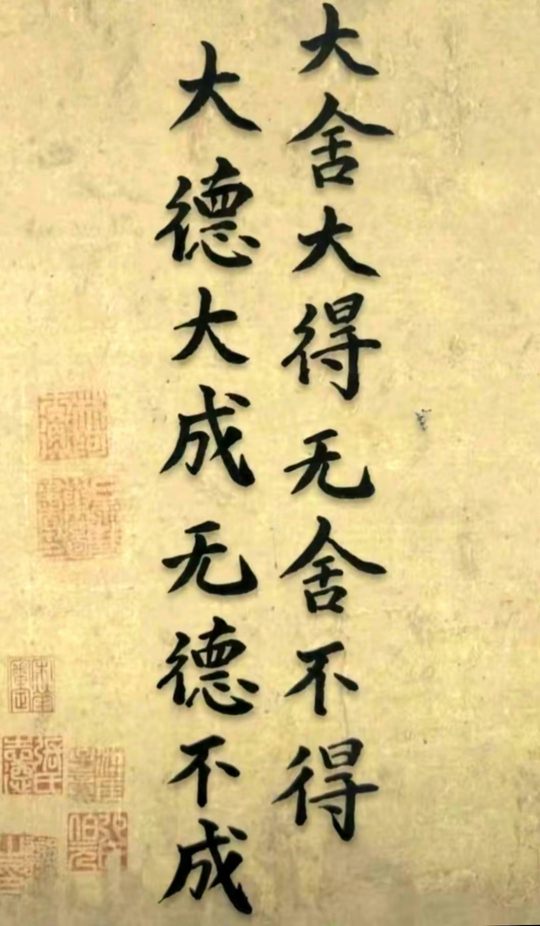 大舍大得无舍不得
大德大成无德不成